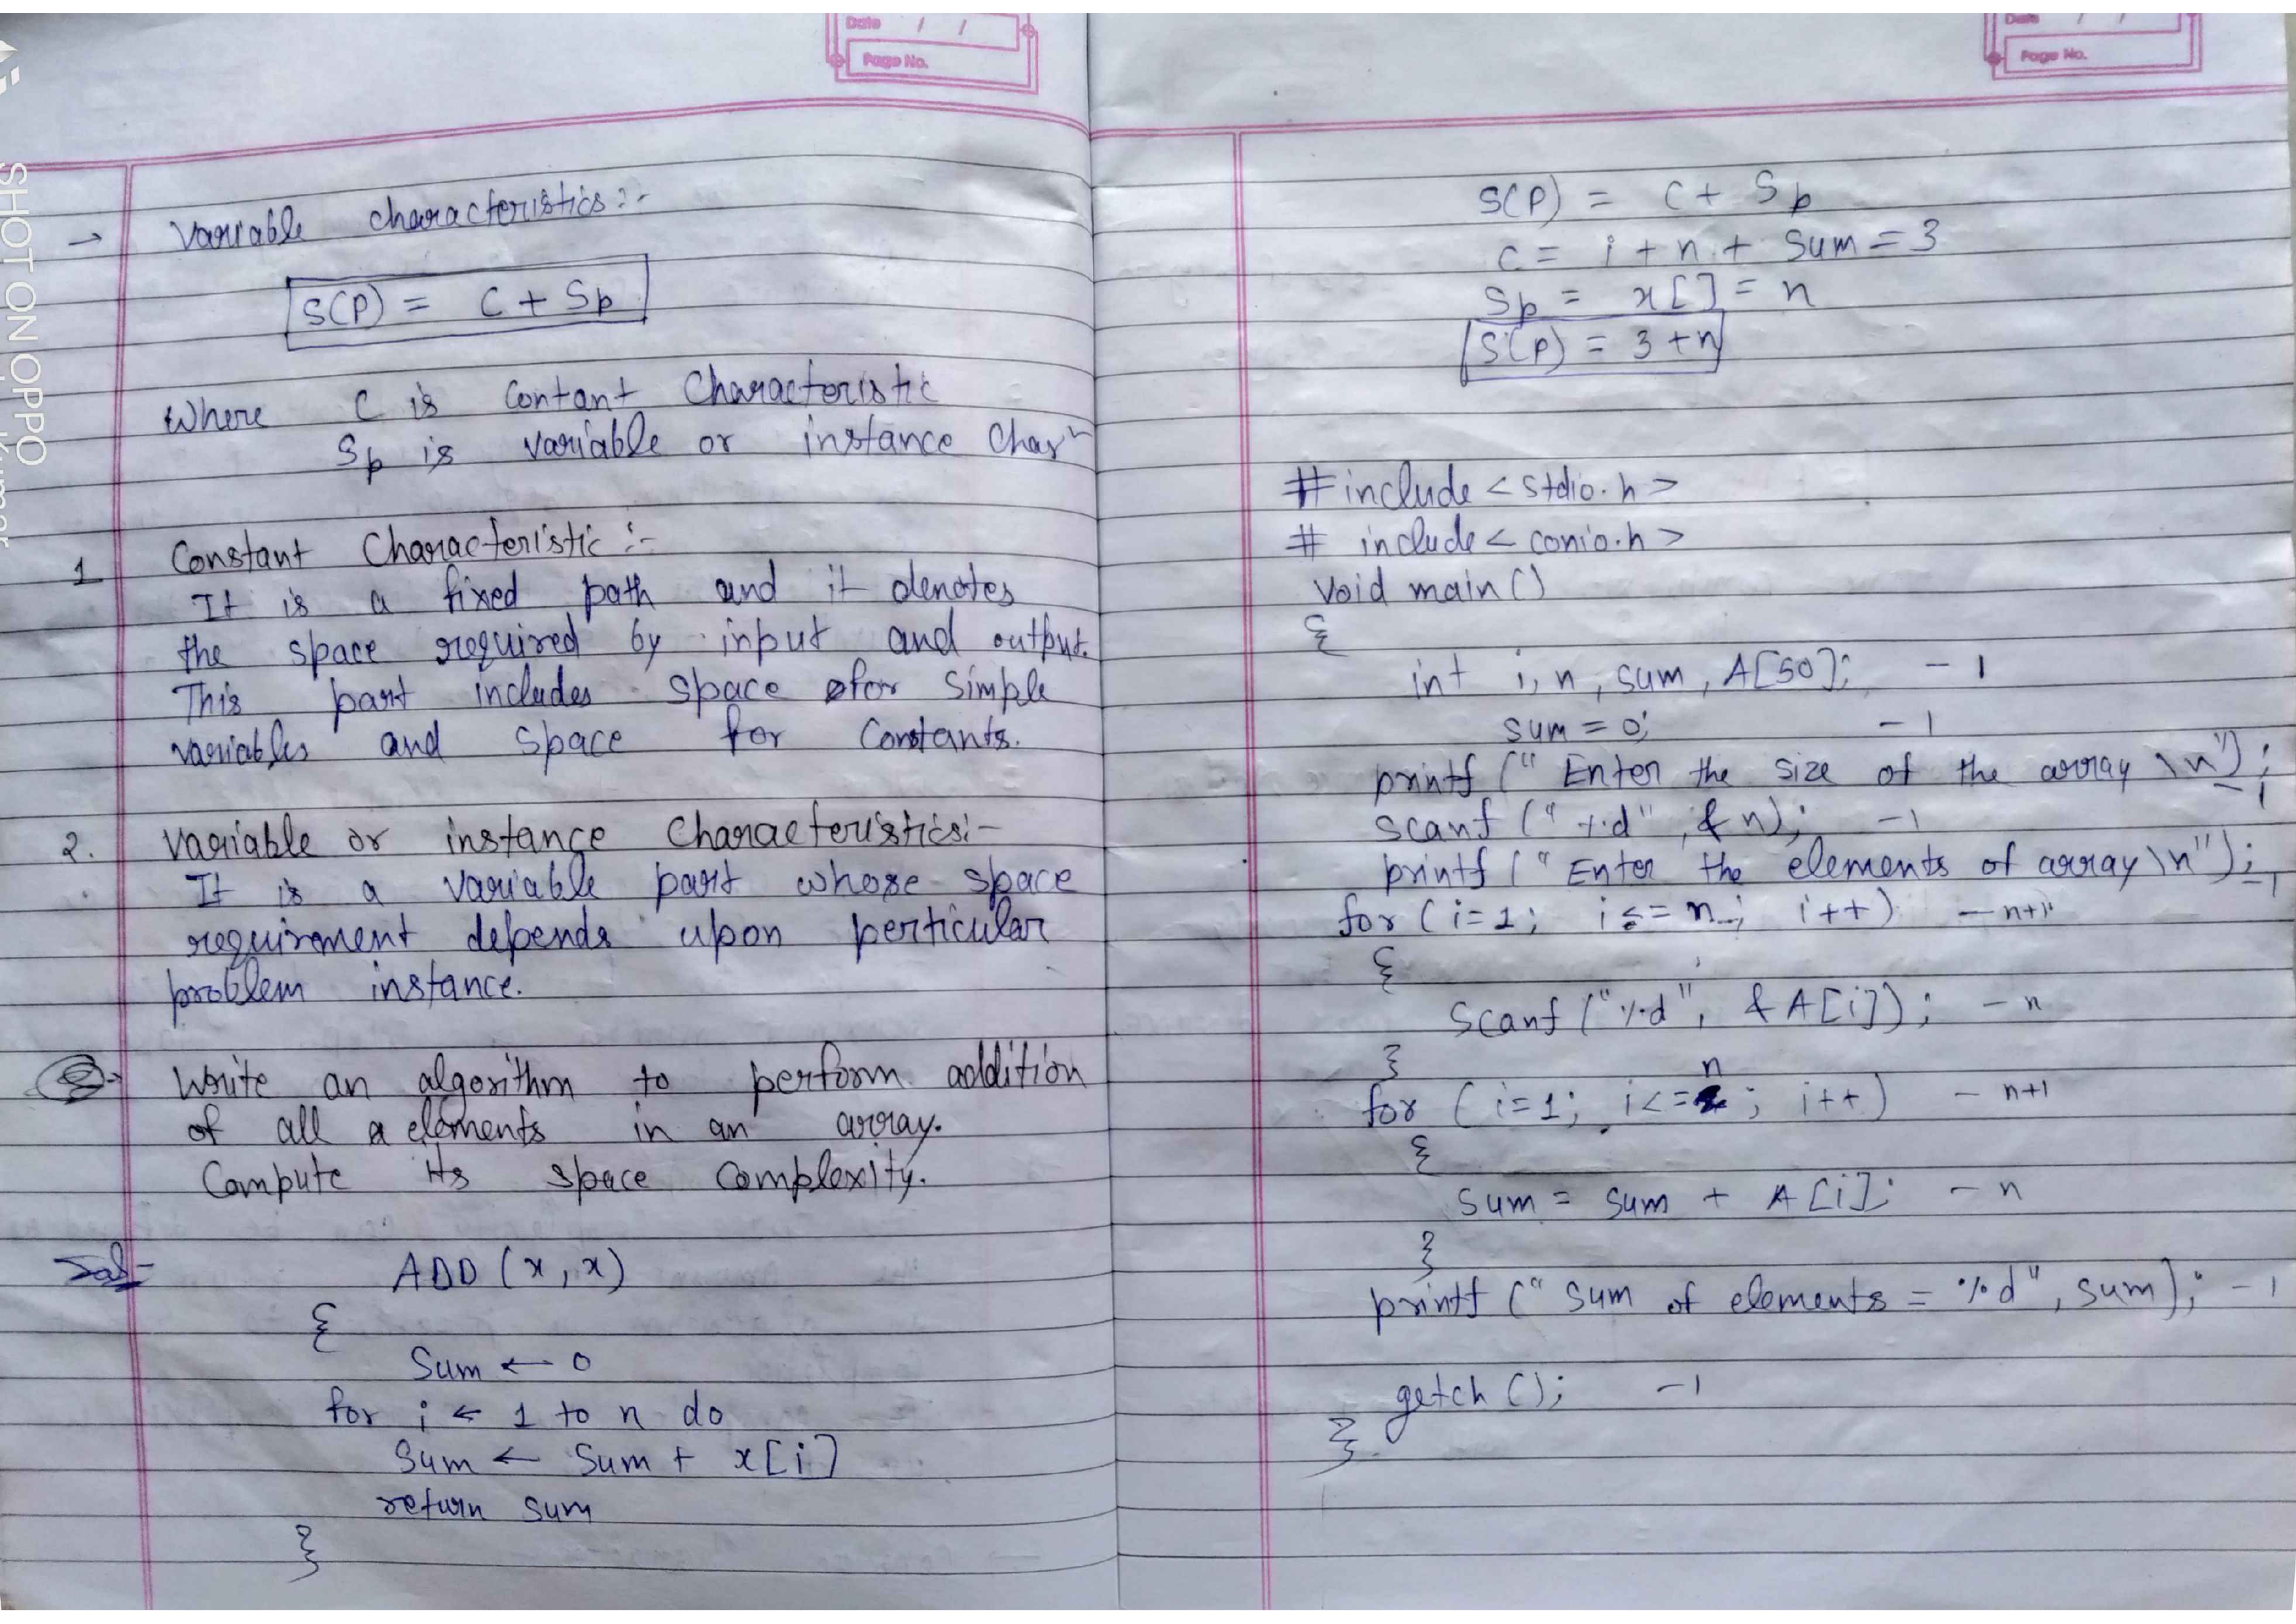 Date / /
Page No.
→ Variable characteristics :-
S(P) = C + Sp
Where C is Contant Characteristic
Sp is variable or instance Char
1 Constant Characteristic :-
It is a fixed path and it denotes
the space required by input and output.
This part includes space for simple
variables and space for Constants.
2. Variable or instance Characteristics:-
It is a variable part whose space
requirement depends upon perticular
problem instance.
Write an algorithm to perform addition
of all a elements in an array.
Compute its space complexity.
Sol-
ADD (x, x)
{
Sum ← 0
for i ← 1 to n do
Sum ← Sum + x[i]
return sum
}
Date / /
Page No.
S(P) = C + Sp
C = i + n + Sum = 3
Sp = x[] = n
S(P) = 3 + n
#include <stdio.h>
# include <conio.h>
Void main()
{
int i, n, sum, A[50]; - 1
sum = 0; - 1
printf (" Enter the size of the array \n"); - 1
scanf ("%d", &n); - 1
printf (" Enter the elements of array \n"); - 1
for (i=1; i<=n; i++) - n+1
{
Scanf ("%d", &A[i]); - n
}
for (i=1; i<=n; i++) - n+1
{
sum = sum + A[i]; - n
}
printf (" Sum of elements = %d", sum); - 1
getch (); - 1
}
SHOT ON OPPO